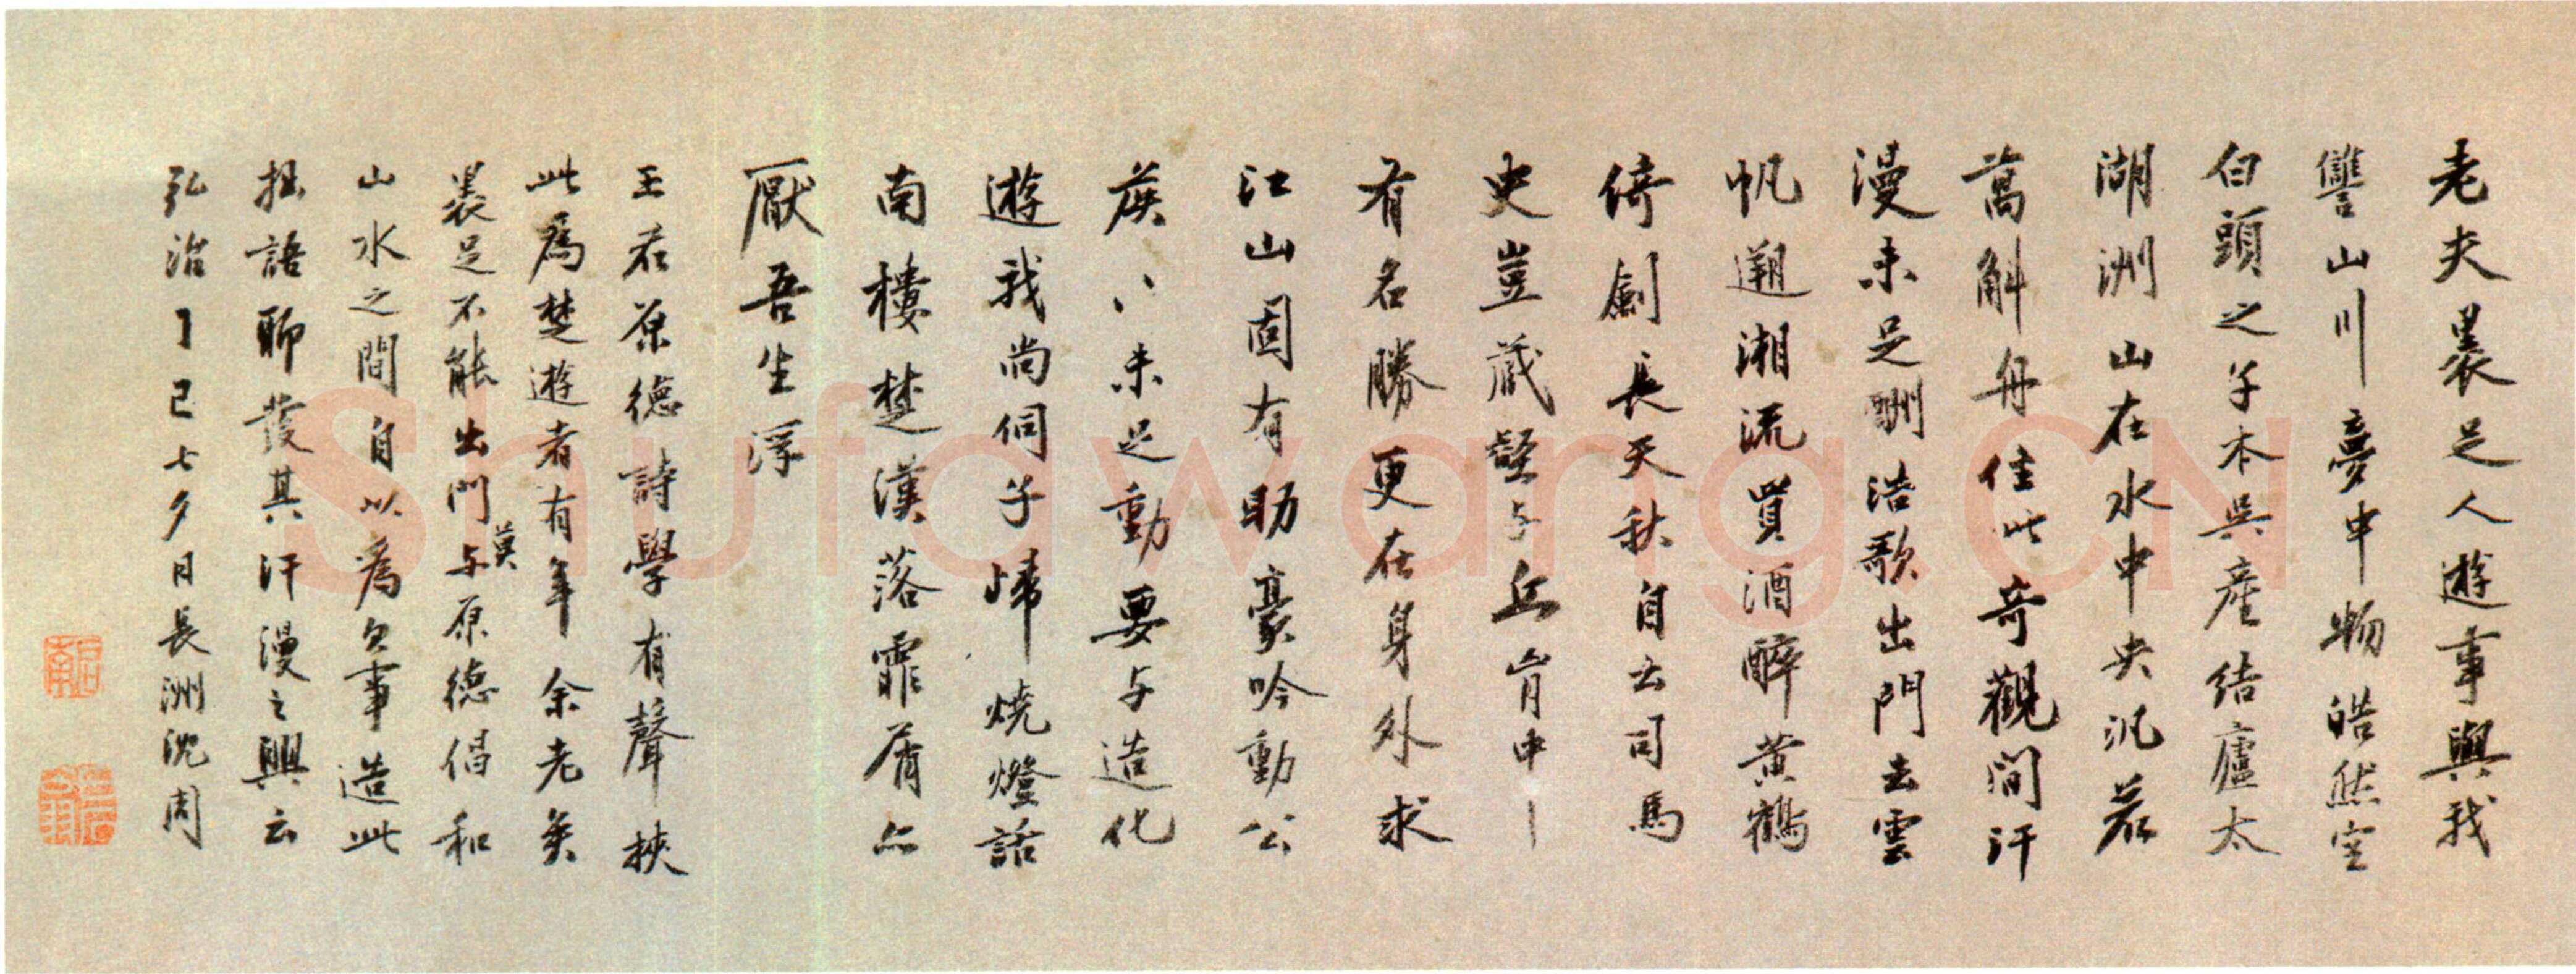 老夫裹足人遊事與我
讐山川夢中物皓然空
白頭之子本吳產結廬太
湖洲山在水中央汎若
萬斛舟住此奇觀間汗
漫未足酬浩歌出門去雲
帆遡湘流買酒醉黃鶴
倚劍長天秋自云司馬
史豈藏壑与丘胷中
有名勝更在身外求
江山固有助豪吟動公
矦〻未足動要与造化
遊我尚伺子歸燒燈話
南樓楚漢落霏屑亦
厭吾生浮
王君原德詩學有聲挾
此為楚遊者有年余老矣
裹足不能出門与原德倡和
莫
山水之間自以為欠事造此
拙語聊發其汗漫之興云
弘治丁巳七夕日長洲沈周
啟南
Shufawang.CN